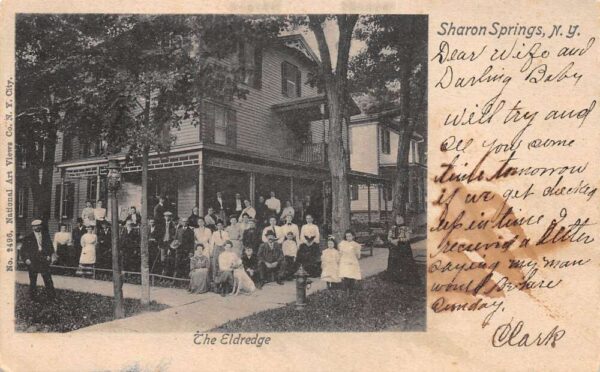 No. 2496. National Art Views Co. N. Y. City.
Sharon Springs, N.Y.
Dear Wife and
Darling Baby
Will try and
see you some
time tomorrow
if we get checked
up in time I
received a letter
saying my man
would be here
Sunday
Clark
The Eldredge